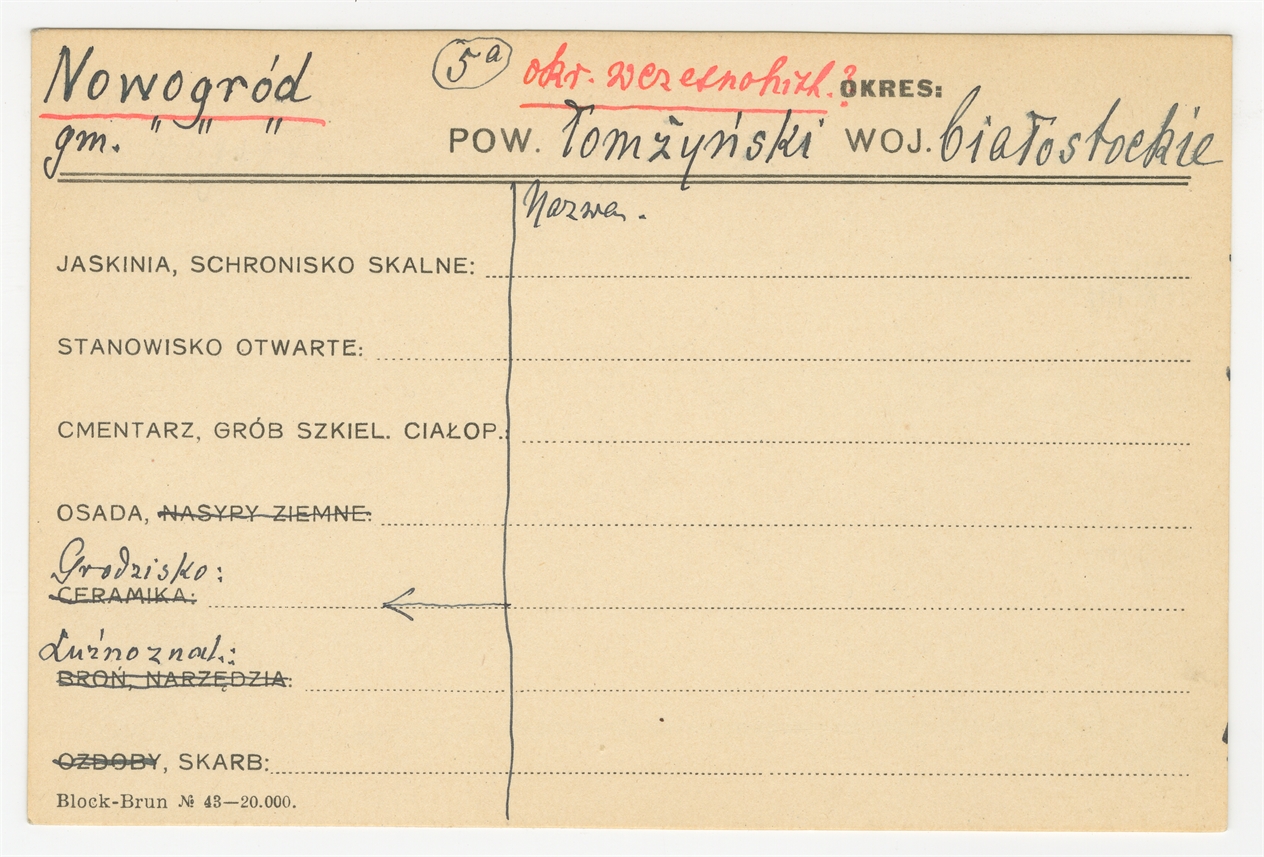 Nowogród 5a okr. wczesnohist.? OKRES:
gm. " " " POW. łomżyński WOJ. białostockie
Nazwa.
JASKINIA, SCHRONISKO SKALNE:
STANOWISKO OTWARTE:
CMENTARZ, GRÓB SZKIEL. CIAŁOP.:
OSADA, NASYPY ZIEMNE:
Grodzisko:
CERAMIKA:
Luźno znal.:
BROŃ, NARZĘDZIA:
OZDOBY, SKARB:
Block-Brun № 43—20.000.